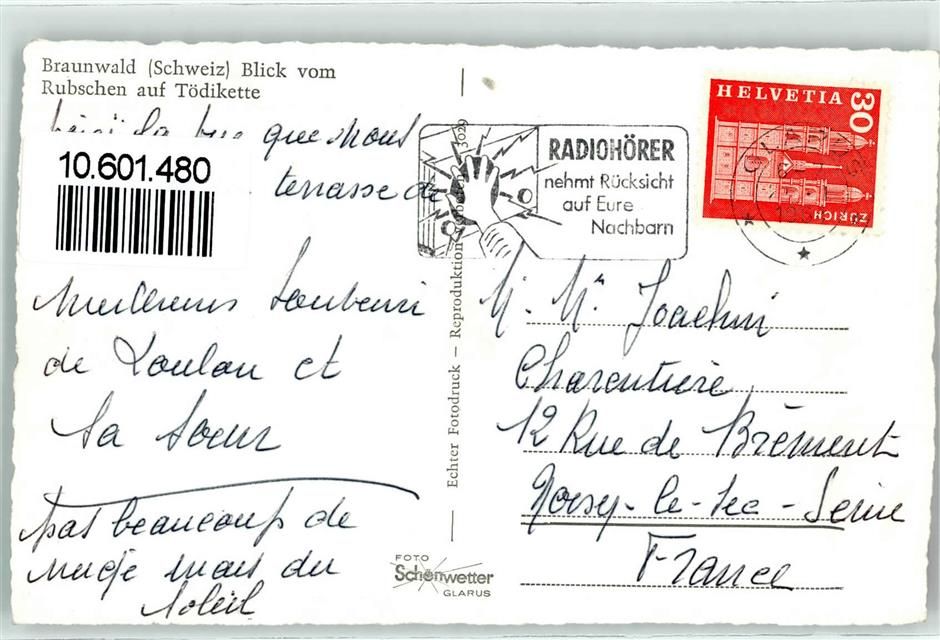 Braunwald (Schweiz) Blick vom
Rubschen auf Tödikette
la vue que nous
terrasse de
10.601.480
Meilleurs Souvenirs
de Loulou et
Sa Soeur
pas beaucoup de
neige mais du
Soleil
Echter Fotodruck — Reproduktion verboten 3029
FOTO
Schönwetter
GLARUS
RADIOHÖRER
nehmt Rücksicht
auf Eure
Nachbarn
HELVETIA 30
ZÜRICH
M. Mr Joachim
Charentière
12 Rue de Brément
Noisy-le-Sec-Seine
France